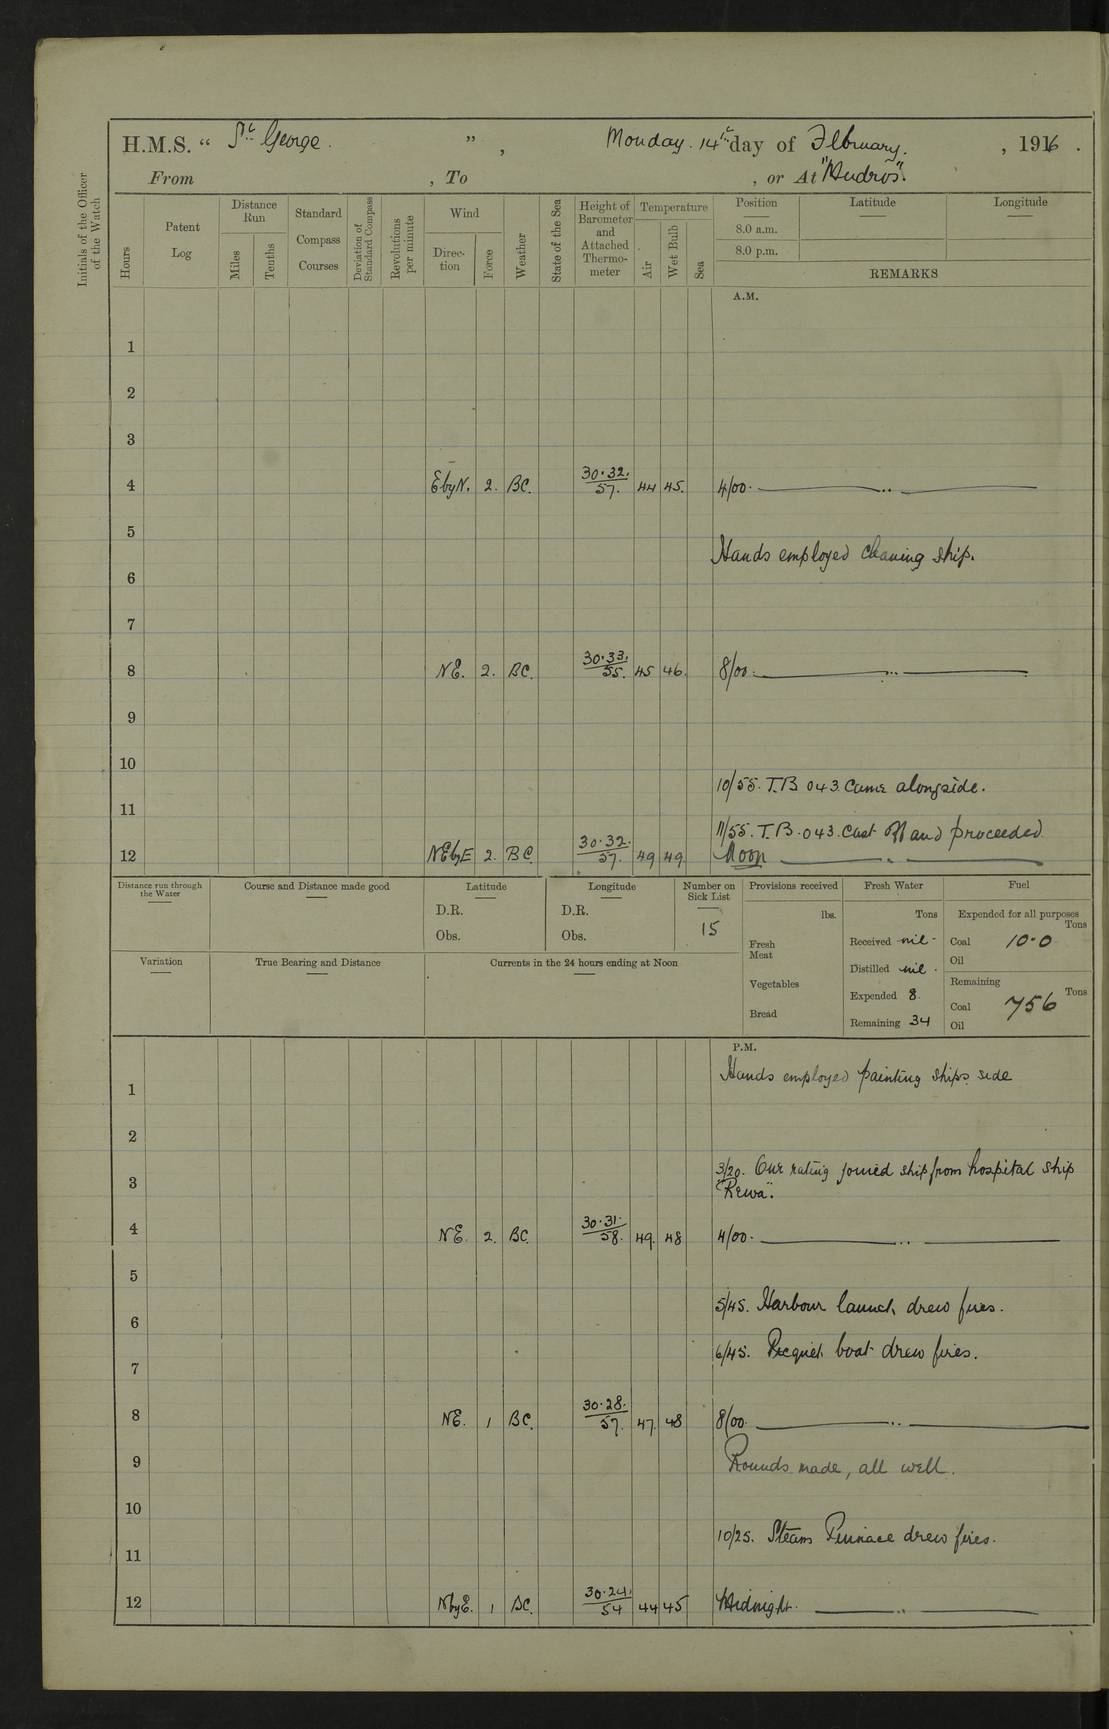 H.M.S. “ St George. ” , Monday. 14th day of February. , 1916 .
From , To , or At "Mudros".
Initials of the Officer of the Watch
Hours
Patent Log
Distance Run
Miles
Tenths
Standard Compass Courses
Deviation of Standard Compass
Revolutions per minute
Wind
Direc-tion
Force
Weather
State of the Sea
Height of Barometer and Attached Thermo-meter
Temperature
Air
Wet Bulb
Sea
Position Latitude Longitude
8.0 a.m.
8.0 p.m.
REMARKS
A.M.
1
2
3
4 EbyN. 2. BC. 30.32. 57. 44 45. 4/00.
5
Hands employed cleaning ship.
6
7
8 NE. 2. BC. 30.33. 55. 45 46. 8/00.
9
10
10/55. T.B 043 came alongside.
11
11/55. T.B. 043. cast off and proceeded
12 NEbyE 2. BC. 30.32. 57. 49 49. Noon
Distance run through the Water
Course and Distance made good
Latitude
D.R.
Obs.
Longitude
D.R.
Obs.
Number on Sick List
15
Provisions received
lbs.
Fresh Meat
Vegetables
Bread
Fresh Water
Tons
Received nil
Distilled nil
Expended 8
Remaining 34
Fuel
Expended for all purposes
Tons
Coal 10.0
Oil
Remaining
Tons
Coal 756
Oil
Variation
True Bearing and Distance
Currents in the 24 hours ending at Noon
P.M.
Hands employed painting ships side
1
2
3/20. One rating joined ship from hospital ship
3 "Rewa".
4 NE. 2. BC. 30.31. 58. 49. 48 4/00.
5
5/45. Harbour launch drew fires.
6
6/45. Picquet boat drew fires.
7
8 NE. 1 BC. 30.28. 57. 47. 48 8/00.
9 Rounds made, all well.
10
10/25. Steam Pinnace drew fires.
11
12 NbyE. 1 BC. 30.24. 54 44 45 Midnight.